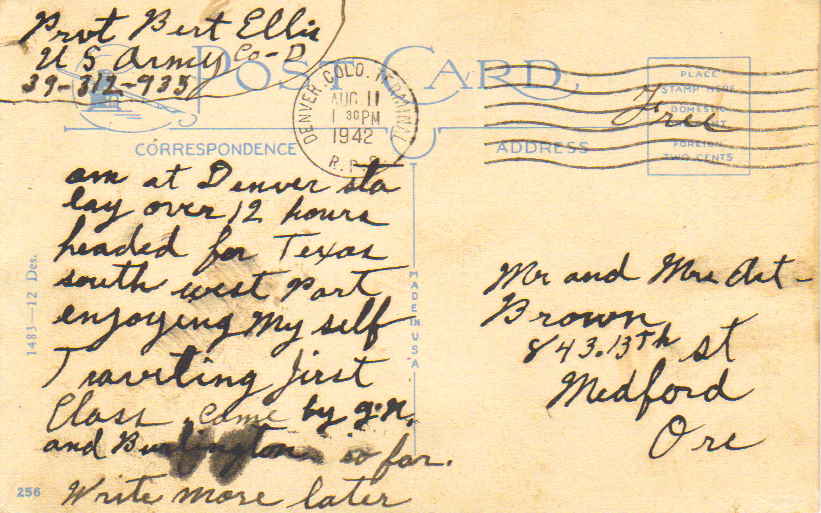 Prvt Bert Ellis
U S Army Co-D
39-312-935
POST CARD
DENVER, COLO. TERMINAL
AUG 11
1 30 PM
1942
R.P.O.
Free
PLACE
STAMP HERE
DOMESTIC
FOREIGN
TWO CENTS
CORRESPONDENCE
ADDRESS
am at Denver sta
lay over 12 hours
headed for Texas
south west Part
enjoying my self
Traveling first
Class, come by g.n.
and Burlington so far.
Write more later
Mr and Mrs Art-
Brown
843.13th st
Medford
Ore
1483-12 Des.
MADE IN USA
256